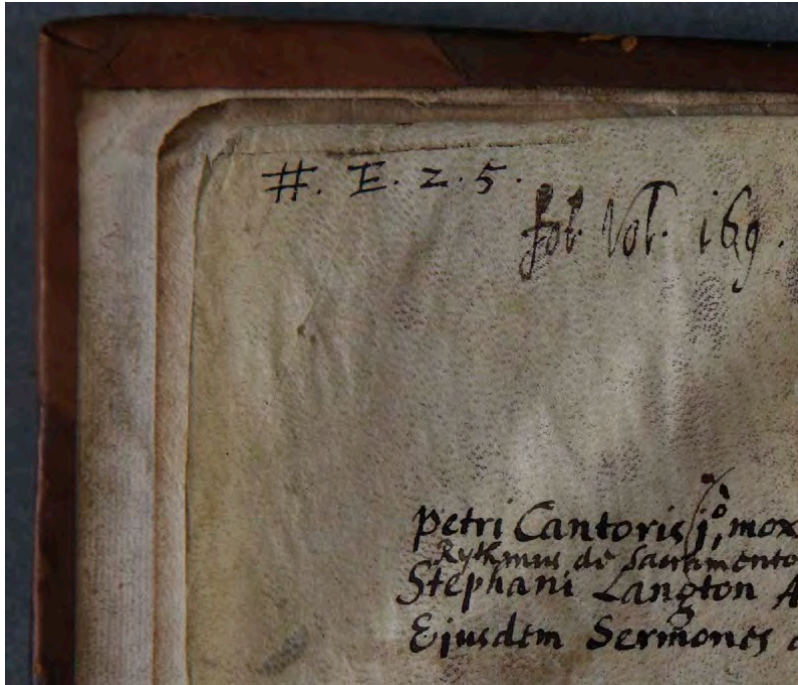 #. E. 2. 5.
fol. Vol. 169.
Petri Cantoris jò, mox
Rythmus de Sacramento
Stephani Langton A
Ejusdem Sermones